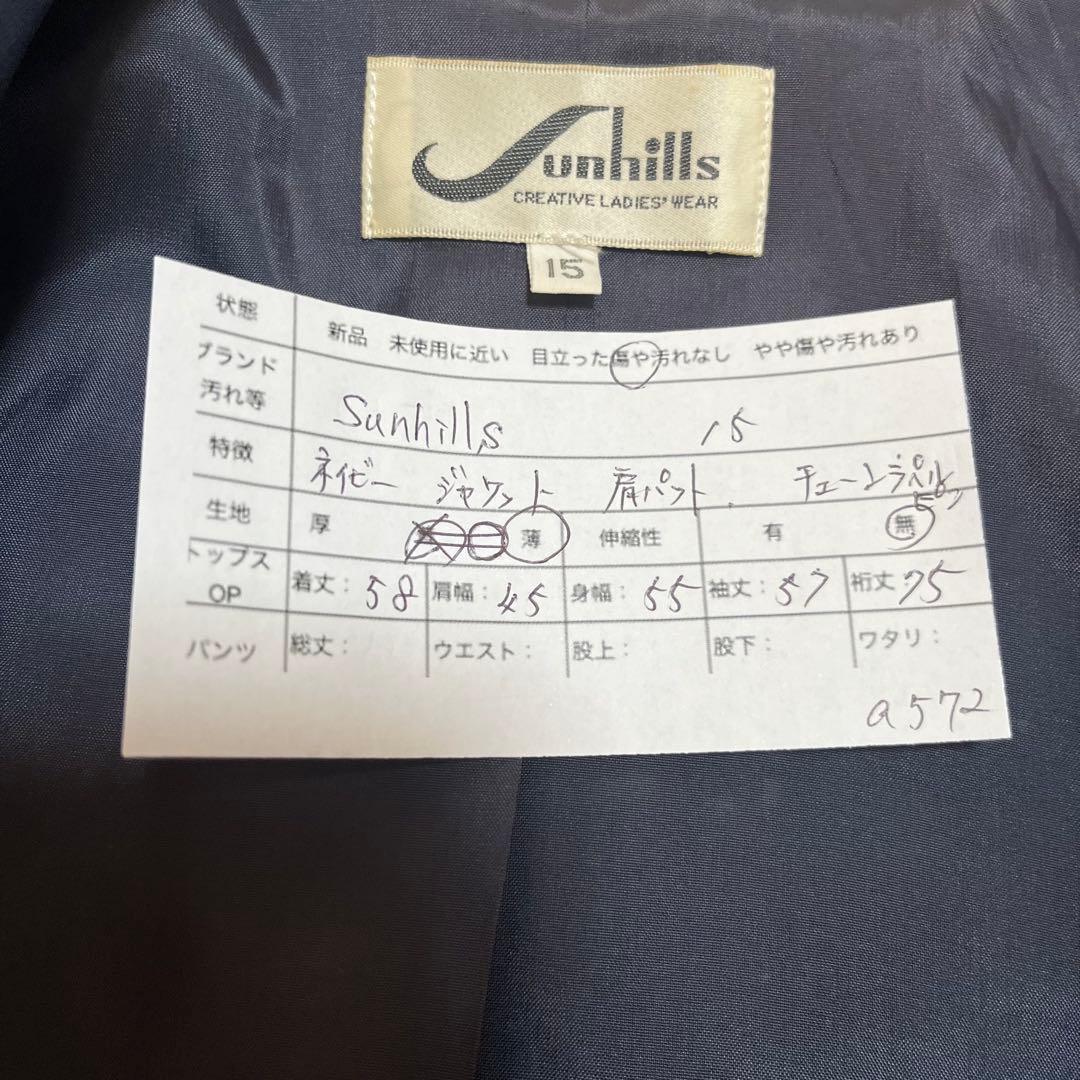 Sunhills
CREATIVE LADIES' WEAR
15
状態 新品 未使用に近い 目立った傷や汚れなし やや傷や汚れあり
ブランド
汚れ等 Sunhills 15
特徴 ネイビー ジャケット 肩パット チェーンラペル
生地 厚 薄 伸縮性 有 無
トップス
OP 着丈: 58 肩幅: 45 身幅: 55 袖丈: 57 裄丈 75
パンツ 総丈: ウエスト: 股上: 股下: ワタリ:
a572